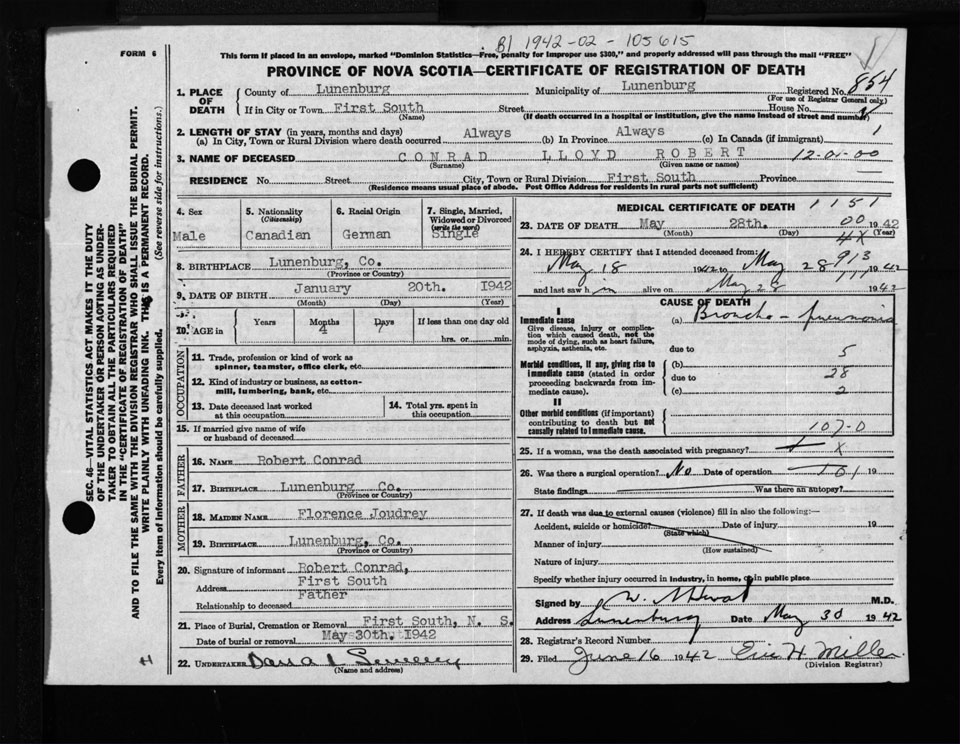 B1 1942-02-105615
FORM 6
This form if placed in an envelope, marked "Dominion Statistics—Free, penalty for improper use $300," and properly addressed will pass through the mail "FREE"
PROVINCE OF NOVA SCOTIA—CERTIFICATE OF REGISTRATION OF DEATH
1. PLACE OF DEATH
County of Lunenburg Municipality of Lunenburg Registered No. 854
(For use of Registrar General only.)
If in City or Town First South Street House No.
(Name) (If death occurred in a hospital or institution, give the name instead of street and number)
2. LENGTH OF STAY (in years, months and days)
(a) In City, Town or Rural Division where death occurred Always (b) In Province Always (c) In Canada (if immigrant) 1
3. NAME OF DECEASED CONRAD LLOYD ROBERT 12-01-00
(Surname) (Given name or names)
RESIDENCE No. Street City, Town or Rural Division First South Province
(Residence means usual place of abode. Post Office Address for residents in rural parts not sufficient)
4. Sex
Male
5. Nationality
(Citizenship)
Canadian
6. Racial Origin
German
7. Single, Married, Widowed or Divorced
(write the word)
Single
8. BIRTHPLACE Lunenburg, Co.
(Province or Country)
9. DATE OF BIRTH January 20th. 1942
(Month) (Day) (Year)
10. AGE in Years Months Days If less than one day old
4 hrs. or min.
OCCUPATION
11. Trade, profession or kind of work as spinner, teamster, office clerk, etc.
12. Kind of industry or business, as cotton-mill, lumbering, bank, etc.
13. Date deceased last worked at this occupation
14. Total yrs. spent in this occupation
15. If married give name of wife or husband of deceased
FATHER
16. NAME Robert Conrad
17. BIRTHPLACE Lunenburg Co.
(Province or Country)
MOTHER
18. MAIDEN NAME Florence Joudrey
19. BIRTHPLACE Lunenburg, Co.
(Province or Country)
20. Signature of informant Robert Conrad,
Address First South
Relationship to deceased Father
21. Place of Burial, Cremation or Removal First South, N. S.
Date of burial or removal May 30th. 1942
22. UNDERTAKER
(Name and address)
MEDICAL CERTIFICATE OF DEATH 1151
00
23. DATE OF DEATH May 28th. 1942
(Month) (Day) (Year)
4X
24. I HEREBY CERTIFY that I attended deceased from:
913
May 18 1942 to May 28 1942
and last saw h m alive on May 28 1942
CAUSE OF DEATH
I
Immediate cause
Give disease, injury or complication which caused death, not the mode of dying, such as heart failure, asphyxia, asthenia, etc.
(a) Broncho-pneumonia
due to 5
Morbid conditions, if any, giving rise to immediate cause (stated in order proceeding backwards from immediate cause).
(b)
due to 28
(c) 2
II
Other morbid conditions (if important) contributing to death but not causally related to immediate cause.
107-0
25. If a woman, was the death associated with pregnancy? X
26. Was there a surgical operation? No Date of operation 19
State findings Was there an autopsy?
27. If death was due to external causes (violence) fill in also the following:—
Accident, suicide or homicide? Date of injury 19
(State which)
Manner of injury
(How sustained)
Nature of injury
Specify whether injury occurred in industry, in home, or in public place
Signed by M.D.
Address Lunenburg Date May 30 1942
28. Registrar's Record Number
29. Filed June 16 1942 Eric H Miller
(Division Registrar)
SEC. 46—VITAL STATISTICS ACT MAKES IT THE DUTY
OF THE UNDERTAKER OR PERSON ACTING AS UNDER-
TAKER TO OBTAIN ALL THE PARTICULARS REQUIRED
IN THE "CERTIFICATE OF REGISTRATION OF DEATH"
AND TO FILE THE SAME WITH THE DIVISION REGISTRAR WHO SHALL ISSUE THE BURIAL PERMIT.
WRITE PLAINLY WITH UNFADING INK. THIS IS A PERMANENT RECORD.
Every item of information should be carefully supplied. (See reverse side for instructions.)